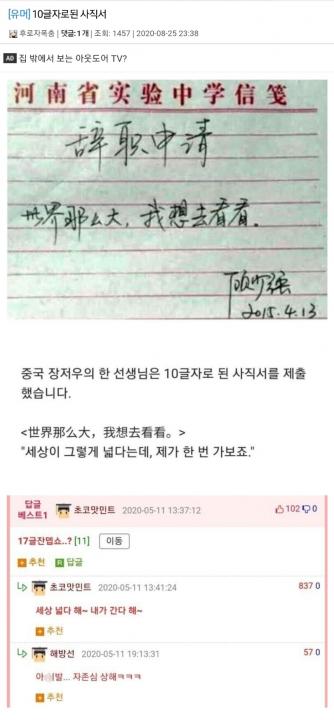 [유머] 10글자로된 사직서
후로자폭숨 | 댓글: 1 개 | 조회: 1457 | 2020-08-25 23:38
AD 집 밖에서 보는 아웃도어 TV?
河南省实验中学信笺
辞职申请
世界那么大,我想去看看.
顾少强
2015.4.13
중국 장저우의 한 선생님은 10글자로 된 사직서를 제출
했습니다.
<世界那么大，我想去看看。>
"세상이 그렇게 넓다는데, 제가 한 번 가보죠."
답글
베스트1
초코맛민트 2020-05-11 13:37:12
102 0
17글잔뎁쇼..? [11] 이동
추천 R 답글
초코맛민트 2020-05-11 13:41:24
837 0
세상 넓다 해~ 내가 간다 해~
추천
해방선 2020-05-11 19:13:31
57 0
발... 자존심 상해ㅋㅋㅋ
추천